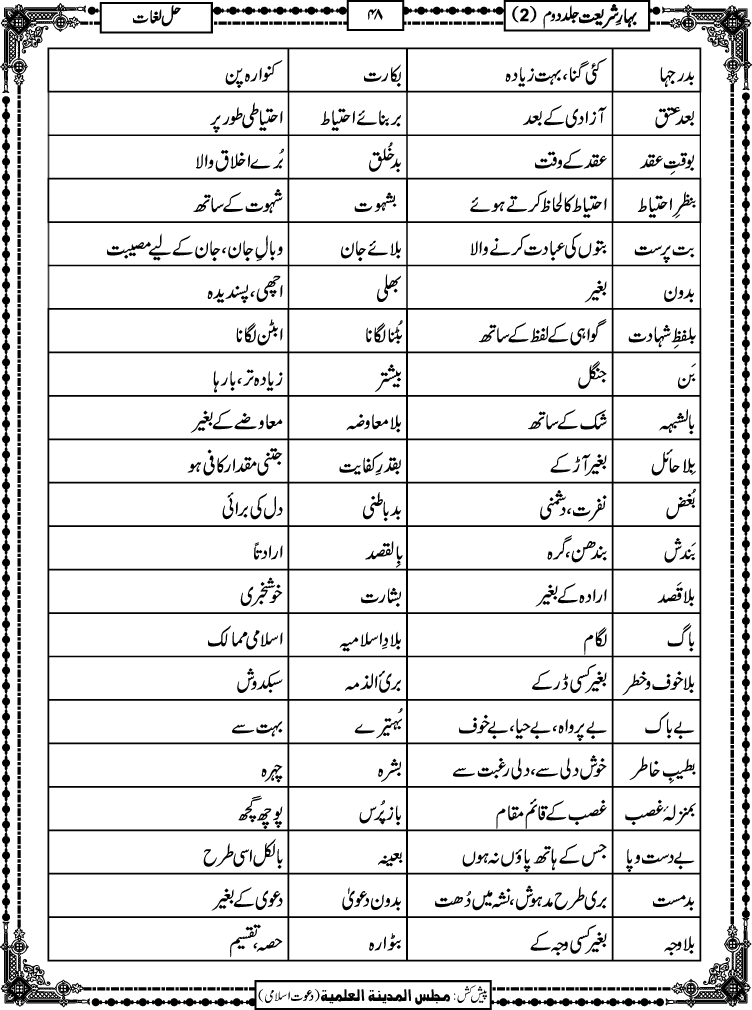 بہارِ شریعت جلد دوم (2) ۴۸ حل لغات
بدرجہا کئی گنا، بہت زیادہ بکارت کنوارہ پن
بعد عتق آزادی کے بعد بر بنائے احتیاط احتیاطی طور پر
بوقتِ عقد عقد کے وقت بدخُلق بُرے اخلاق والا
بنظرِ احتیاط احتیاط کا لحاظ کرتے ہوئے بشہوت شہوت کے ساتھ
بت پرست بتوں کی عبادت کرنے والا بلائے جان وبالِ جان، جان کے لیے مصیبت
بدون بغیر بھلی اچھی، پسندیدہ
بلفظِ شہادت گواہی کے لفظ کے ساتھ بُٹنا لگانا ابٹن لگانا
بَن جنگل بیشتر زیادہ تر، بارہا
بالشبہہ شک کے ساتھ بلا معاوضہ معاوضے کے بغیر
بِلا حائل بغیر آڑ کے بقدرِ کفایت جتنی مقدار کافی ہو
بُغض نفرت، دشمنی بد باطنی دل کی برائی
بَندش بندھن، گرہ بِالقصد ارادتاً
بلا قَصد ارادہ کے بغیر بشارت خوشخبری
باگ لگام بلادِ اسلامیہ اسلامی ممالک
بلا خوف و خطر بغیر کسی ڈر کے بریٔ الذمہ سبکدوش
بے باک بے پرواہ، بے حیا، بے خوف بُہتیرے بہت سے
بطیبِ خاطر خوش دلی سے، دلی رغبت سے بشرہ چہرہ
بمنزلۂ غصب غصب کے قائم مقام باز پُرس پوچھ گچھ
بے دست و پا جس کے ہاتھ پاؤں نہ ہوں بعینہ بالکل اسی طرح
بدمست بری طرح مدہوش، نشہ میں دُھت بدون دعویٰ دعوی کے بغیر
بلا وجہ بغیر کسی وجہ کے بٹوارہ حصہ، تقسیم
پیش کش: مجلس المدینة العلمیة (دعوت اسلامی)